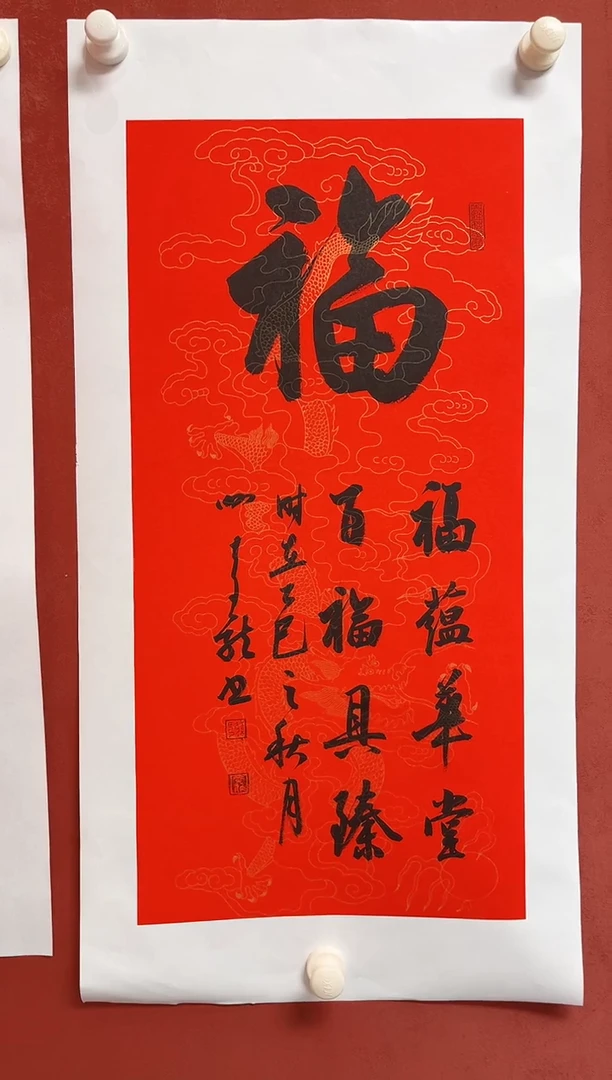 福
福蕴華堂
百福具臻
时在乙巳之秋月